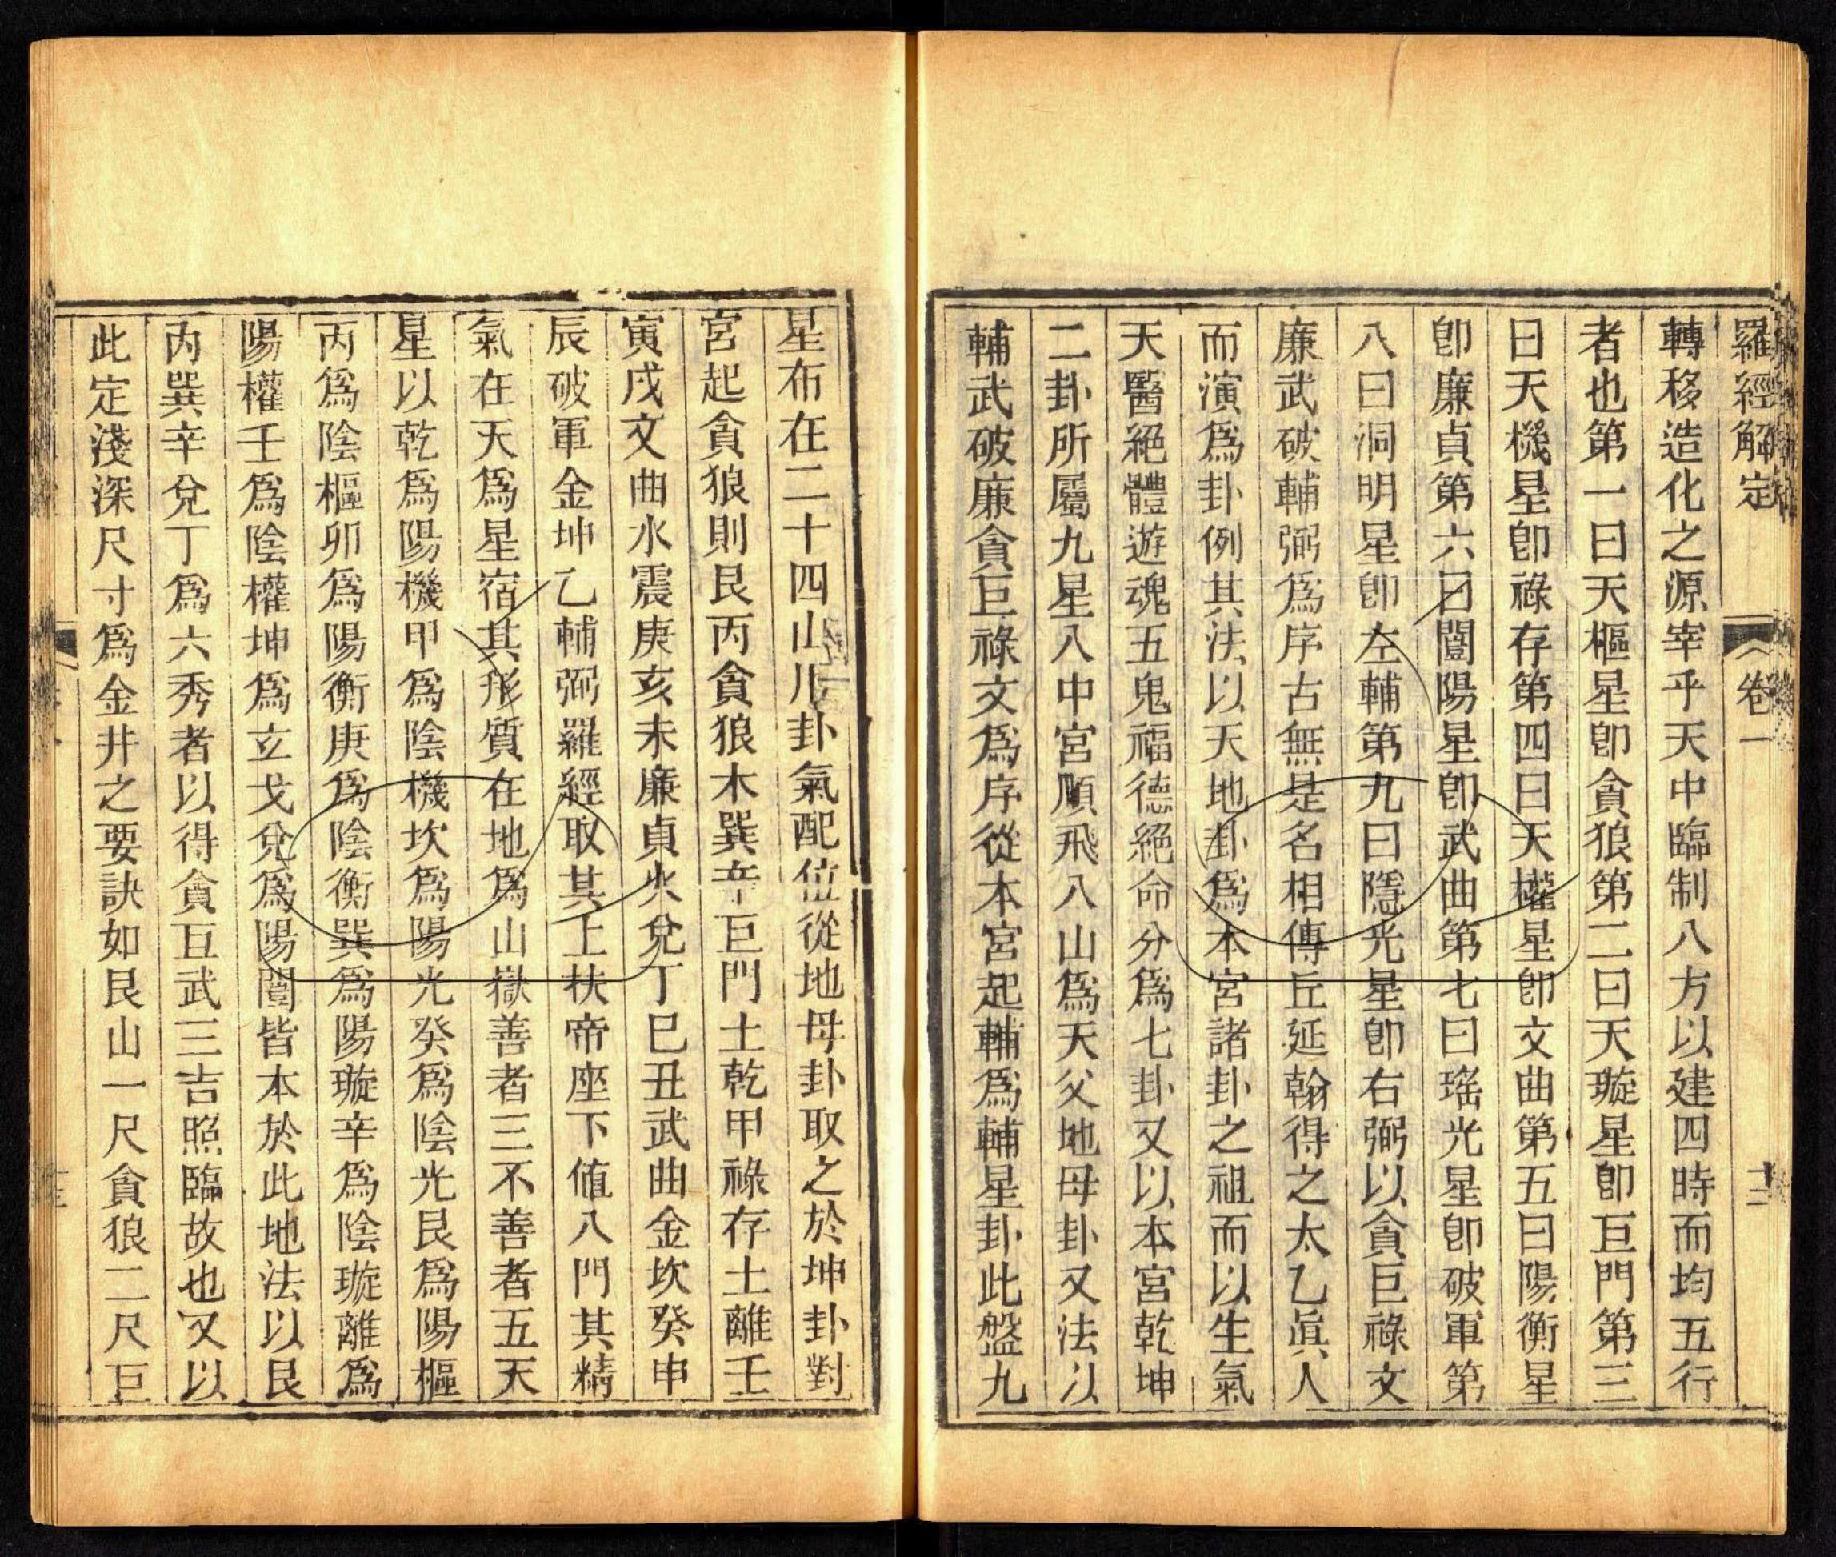 羅經解定
卷一
十二
轉移造化之源宰乎天中臨制八方以建四時而均五行
者也第一曰天樞星卽貪狼第二曰天璇星卽巨門第三
曰天機星卽祿存第四曰天權星卽文曲第五曰陽衡星
卽廉貞第六曰闓陽星卽武曲第七曰瑤光星卽破軍第
八曰洞明星卽左輔第九曰隱光星卽右弼以貪巨祿文
廉武破輔弼爲序古無是名相傳丘延翰得之太乙眞人
而演爲卦例其法以天地卦爲本宮諸卦之祖而以生氣
天醫絕體遊魂五鬼福德絕命分爲七卦又以本宮乾坤
二卦所屬九星入中宮順飛八山爲天父地母卦又法以
輔武破廉貪巨祿文爲序從本宮起輔爲輔星卦此盤九
星布在二十四山用卦氣配位從地母卦取之於坤卦對
宮起貪狼則艮丙貪狼木巽辛巨門土乾甲祿存土離壬
寅戌文曲水震庚亥未廉貞火兌丁巳丑武曲金坎癸申
辰破軍金坤乙輔弼羅經取其上扶帝座下値八門其精
氣在天爲星宿其形質在地爲山嶽善者三不善者五天
星以乾爲陽機甲爲陰機坎爲陽光癸爲陰光艮爲陽樞
丙爲陰樞卯爲陽衡庚爲陰衡巽爲陽璇辛爲陰璇離爲
陽權壬爲陰權坤爲立戈兌爲陽闓皆本於此地法以艮
丙巽辛兌丁爲六秀者以得貪巨武三吉照臨故也又以
此定淺深尺寸爲金井之要訣如艮山一尺貪狼二尺巨